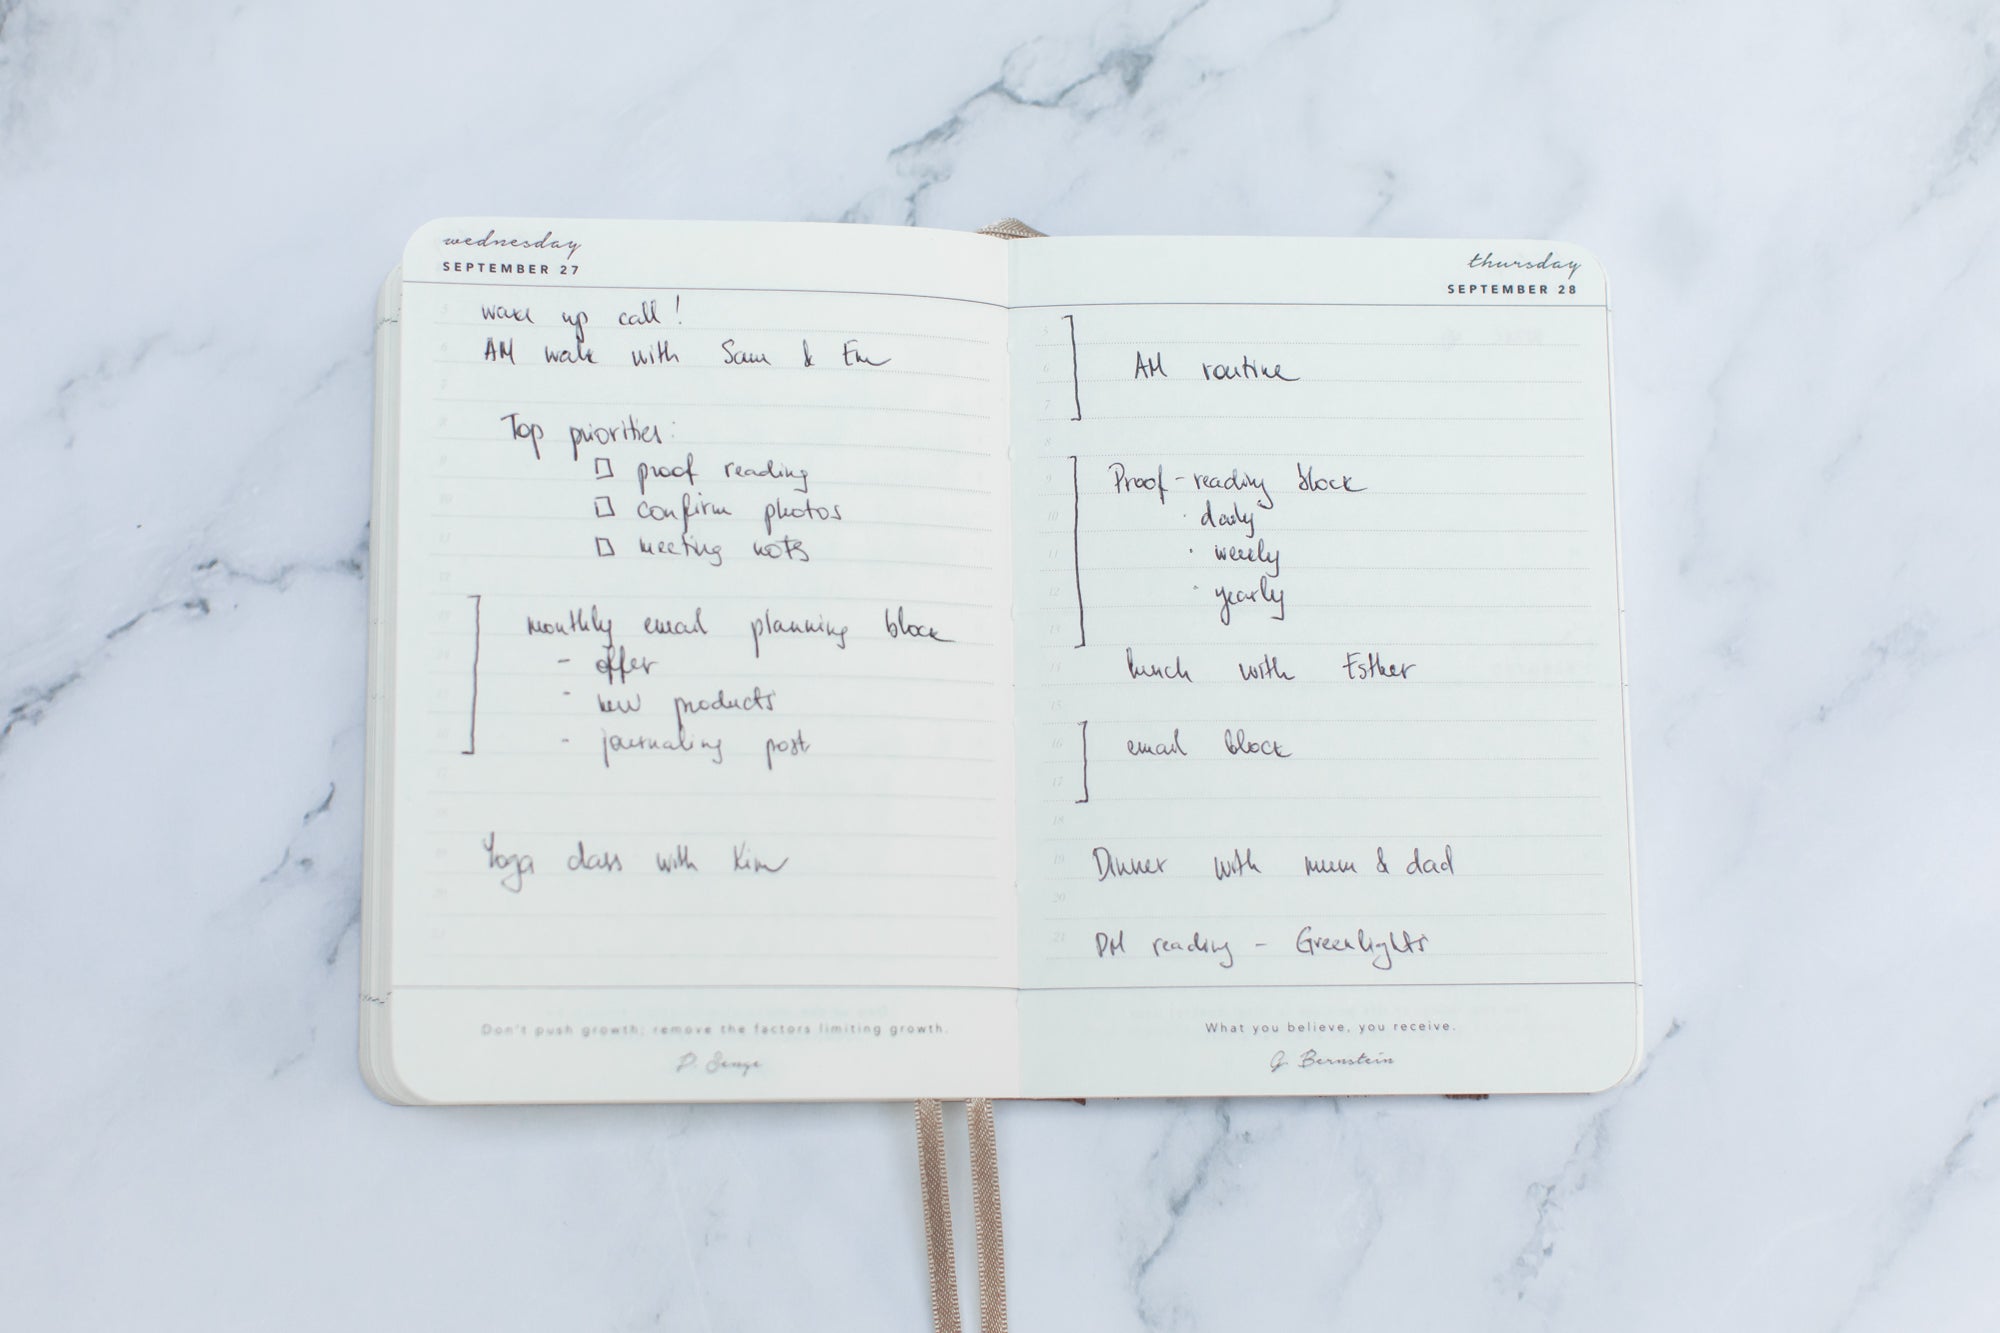 wednesday
SEPTEMBER 27
5 wake up call!
6 AM walk with Sam & Em
7
8 Top priorities:
9 □ proof reading
10 □ confirm photos
11 □ meeting nots
12
13 monthly email planning block
14 - offer
15 - new products
16 - journaling post
17
18
19 Yoga class with Kim
20
21
Don't push growth; remove the factors limiting growth.
P. Senge
thursday
SEPTEMBER 28
5
6 AM routine
7
8
9 Proof-reading block
10 · daily
11 · weekly
12 · yearly
13
14 lunch with Esther
15
16 email block
17
18
19 Dinner with mum & dad
20
21 PM reading - Greenlights
What you believe, you receive.
G. Bernstein